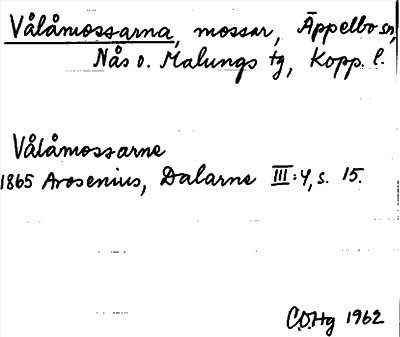 Vålåmossarna, mossar, Äppelbo sn,
Nås o. Malungs tg, Kopp. l.
Vålåmossarne
1865 Arosenius, Dalarne III:4, s. 15.
C.O.Hg 1962